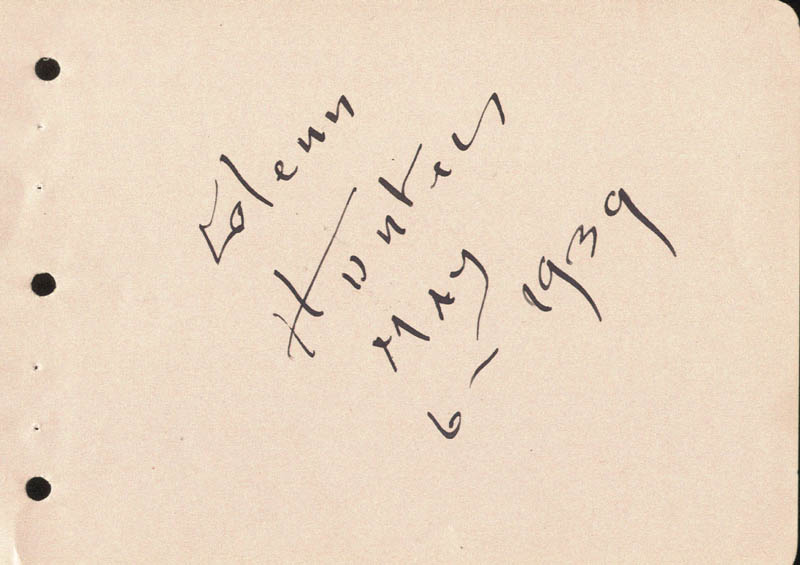 Glenn
Hunter
May
6 - 1939